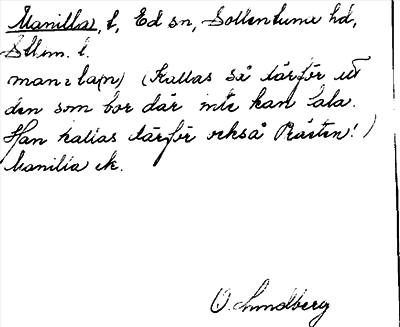 Manilla, t, Ed sn, Sollentuna hd,
Sthlm. l.
(Kallas så därför att
den som bor där inte kan tala.
Han kallas därför också Rästen!)
Manilla ek.
O. Lundberg